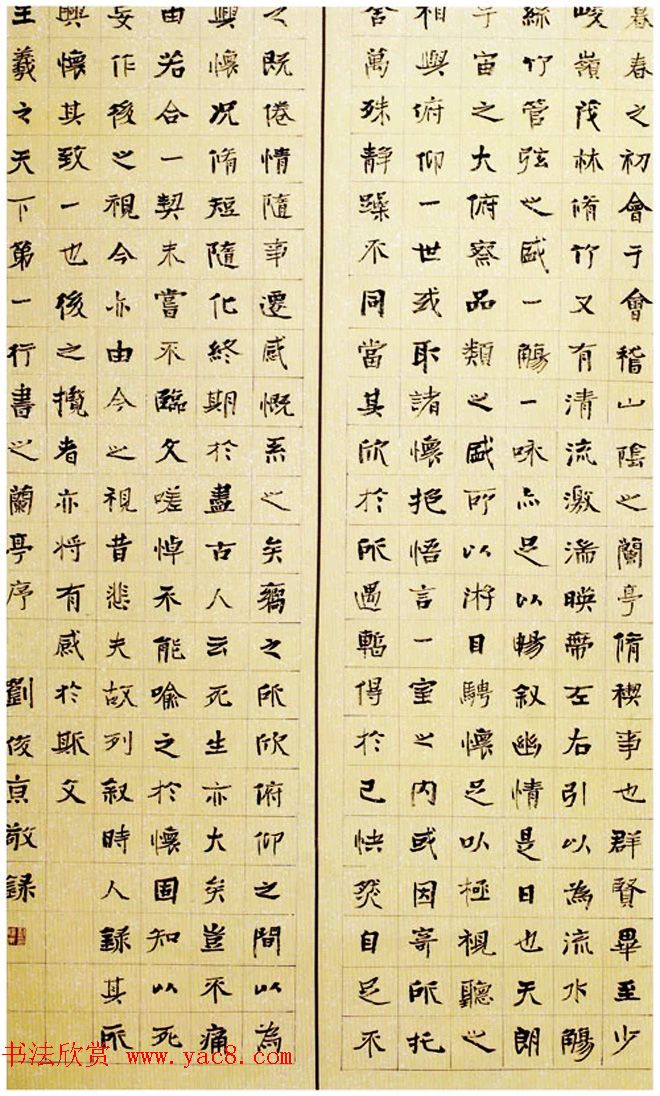 暮春之初會于會稽山陰之蘭亭脩禊事也群賢畢至少
峻嶺茂林脩竹又有清流激湍暎帶左右引以為流水觴
絲竹管弦之盛一觴一咏亦足以暢叙幽情是日也天朗
宇宙之大俯察品類之盛所以游目騁懷足以極視聽之
相與俯仰一世或取諸懷抱悟言一室之内或因寄所托
舍萬殊静躁不同當其欣於所遇暫得於己快然自足不
之既倦情隨事遷感慨系之矣嚮之所欣俯仰之間以為
興懷况脩短隨化終期於盡古人云死生亦大矣豈不痛
由若合一契未嘗不臨文嗟悼不能喻之於懷固知以死
妄作後之視今亦由今之視昔悲夫故列叙時人録其所
興懷其致一也後之攬者亦將有感於斯文
王羲之天下第一行書之蘭亭序 劉俊亰敬録
书法欣赏 www.yac8.com